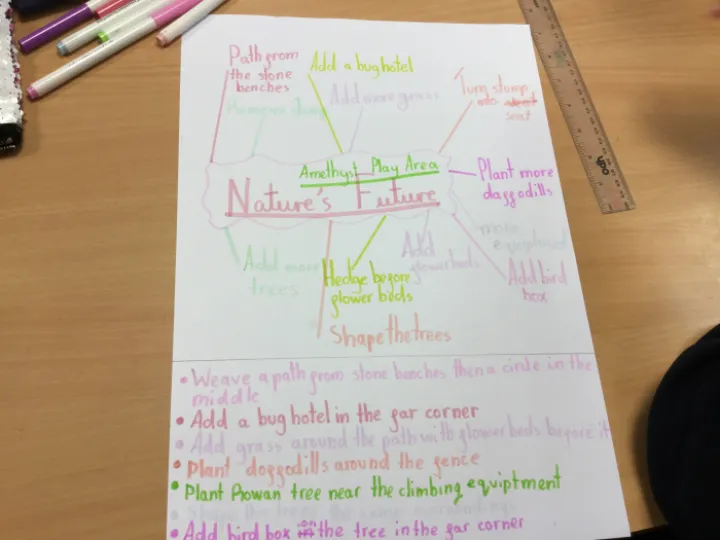 Path from
the stone
benches
Add a bug hotel
Add more grass
Turn stump
into
seat
Amethyst Play Area
Nature's Future
Plant more
daffodills
Add more
trees
Hedge before
flower beds
Add
flowerbeds
more
equipment
Add bird
box
Shape the trees
• Weave a path from stone benches then a circle in the
middle
• Add a bug hotel in the far corner
• Add grass around the path with flowerbeds before it
• Plant daffodills around the fence
• Plant Rowan tree near the climbing equiptment
• Add bird box on the tree in the far corner